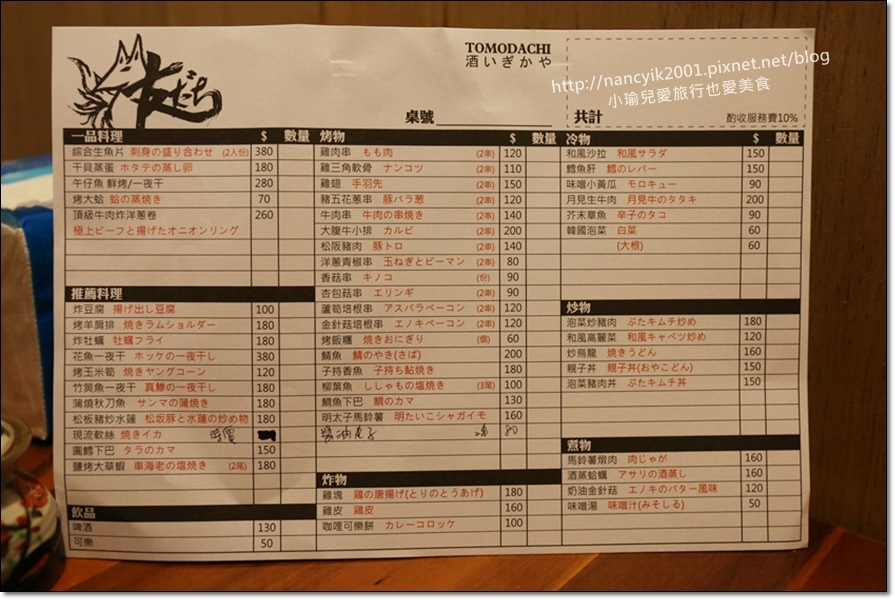 友だち
TOMODACHI
酒いざかや
http://nancyik2001.pixnet.net/blog
小瑜兒愛旅行也愛美食
桌號
共計
酌收服務費10%
一品料理 $ 數量
綜合生魚片 刺身の盛り合わせ (2人份) 380
干貝蒸蛋 ホタテの蒸し卵 180
午仔魚 鮮烤/一夜干 280
烤大蛤 蛤の蒸焼き 70
頂級牛肉炸洋蔥卷 260
極上ビーフと揚げたオニオンリング
推薦料理
炸豆腐 揚げ出し豆腐 100
烤羊肩排 焼きラムショルダー 180
炸牡蠣 牡蠣フライ 180
花魚一夜干 ホッケの一夜干し 380
烤玉米筍 焼きヤングコーン 120
竹筴魚一夜干 真鰺の一夜干し 180
蒲燒秋刀魚 サンマの蒲焼き 180
松板豬炒水蓮 松坂豚と水蓮の炒め物 180
現流軟絲 焼きイカ 時價
圓鱈下巴 タラのカマ 150
鹽烤大草蝦 車海老の塩焼き (2尾) 180
飲品
啤酒 130
可樂 50
烤物 $ 數量
雞肉串 もも肉 (2串) 120
雞三角軟骨 ナンコツ (2串) 110
雞翅 手羽先 (2串) 150
豬五花蔥串 豚バラ葱 (2串) 120
牛肉串 牛肉の串焼き (2串) 140
大腹牛小排 カルビ (2串) 200
松阪豬肉 豚トロ (2串) 140
洋蔥青椒串 玉ねぎとピーマン (2串) 80
香菇串 キノコ (份) 90
杏包菇串 エリンギ (2串) 90
蘆筍培根串 アスパラベーコン (2串) 120
金針菇培根串 エノキベーコン (2串) 120
烤飯糰 焼きおにぎり (個) 60
鯖魚 鯖のやき(さば) 200
子持香魚 子持ち鮎焼き 180
柳葉魚 ししゃもの塩焼き (3尾) 100
鯛魚下巴 鯛のカマ 130
明太子馬鈴薯 明たいこシャガイモ 160
醬油丸子 80
炸物
雞塊 鶏の唐揚げ(とりのとうあげ) 180
雞皮 鶏皮 160
咖哩可樂餅 カレーコロッケ 100
冷物 $ 數量
和風沙拉 和風サラダ 150
鱈魚肝 鱈のレバー 150
味噌小黃瓜 モロキュー 90
月見生牛肉 月見牛のタタキ 200
芥末章魚 辛子のタコ 90
韓國泡菜 白菜 60
(大根) 60
炒物
泡菜炒豬肉 ぶたキムチ炒め 180
和風高麗菜 和風キャベツ炒め 120
炒烏龍 焼きうどん 160
親子丼 親子丼(おやこどん) 150
泡菜豬肉丼 ぶたキムチ丼 150
煮物
馬鈴薯燉肉 肉じゃが 160
酒蒸蛤蠣 アサリの酒蒸し 160
奶油金針菇 エノキのバター風味 120
味噌湯 味噌汁(みそしる) 50